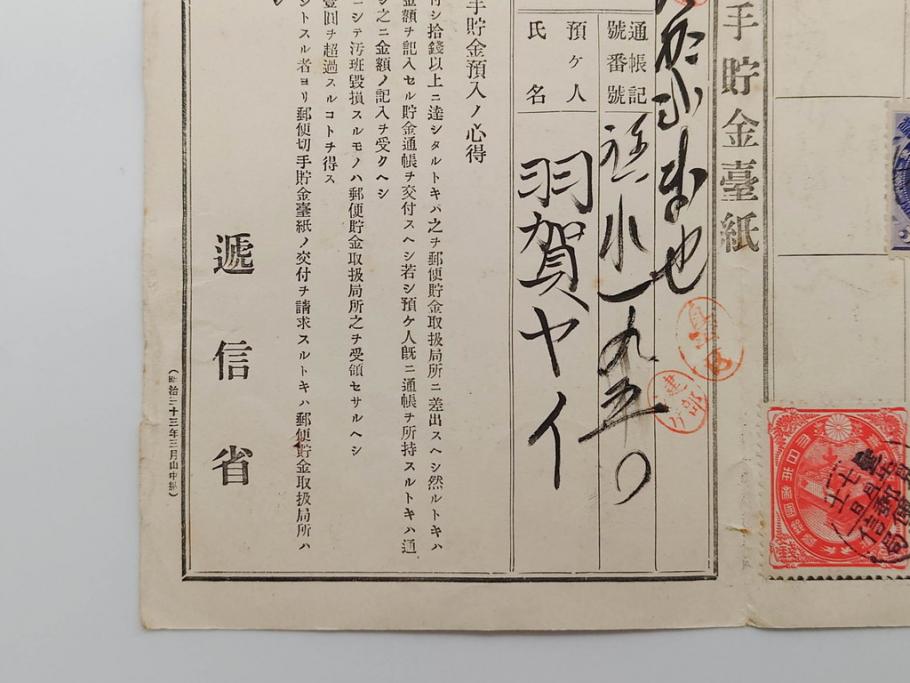 手貯金臺紙
通帳記
號番號
一九五〇
預ケ人
氏名
羽賀ヤイ
手貯金預入ノ心得
付シ拾錢以上ニ達シタルトキハ之ヲ郵便貯金取扱局所ニ差出スヘシ然ルトキハ
金額ヲ記入セル貯金通帳ヲ交付スヘシ若シ預ケ人既ニ通帳ヲ所持スルトキハ通
シ之ニ金額ノ記入ヲ受クヘシ
ニシテ汚斑毀損スルモノハ郵便貯金取扱局所之ヲ受領セサルヘシ
壹回ヲ超過スルコトヲ得ス
ントスル者ヨリ郵便切手貯金臺紙ノ交付ヲ請求スルトキハ郵便貯金取扱局所ハ
遞信省
(明治三十三年三月山中印)